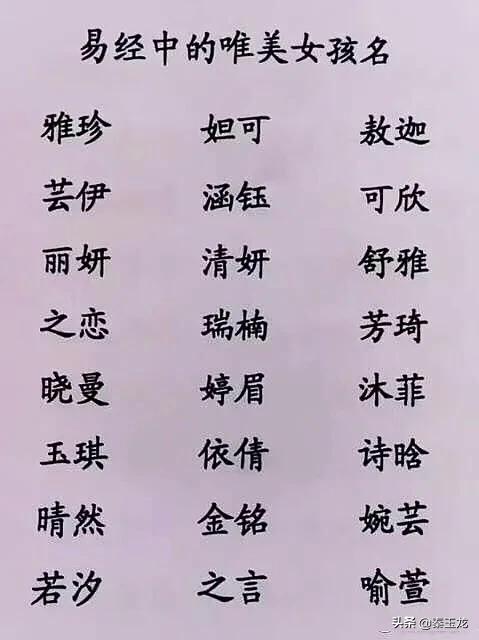 易经中的唯美女孩名
雅珍 妲可 敖迦
芸伊 涵钰 可欣
丽妍 清妍 舒雅
之恋 瑞楠 芳琦
晓曼 婷眉 沐菲
玉琪 依倩 诗晗
晴然 金铭 婉芸
若汐 之言 喻萱
头条 @秦玉龙